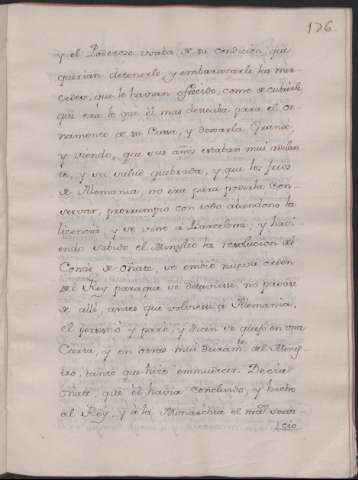 126
y el Poderoso usaba de su condicion, que
querian detenerle, y embarazarle las mer-
cedes, que le havian ofrecido, como de cubierle
que era lo que él mas deseaba para el or-
namento de su Casa, y dexarla Grande,
y viendo, que sus años estaban mui adelan-
te, y su salud quebrada, y que los frios
de Alemania, no era para poderla con-
servar, prorrumpió con todo abandono la
licencia, y se vino a Barcelona, y havi-
endo sabido el Ministro la resolucion del
Conde de Oñate, se embió nueva orden
del Rey para que se detuviese no pasase
de alli, antes que volviese a Alemania,
el y paró, y dicen se quejó en una
Carta, y en otras mui del Minis-
tro, tanto que hizo enmudecer. Decia
Oñate que el havia concluido, y hecho
al Rey, y á la Monarchia el maior servi-
cio